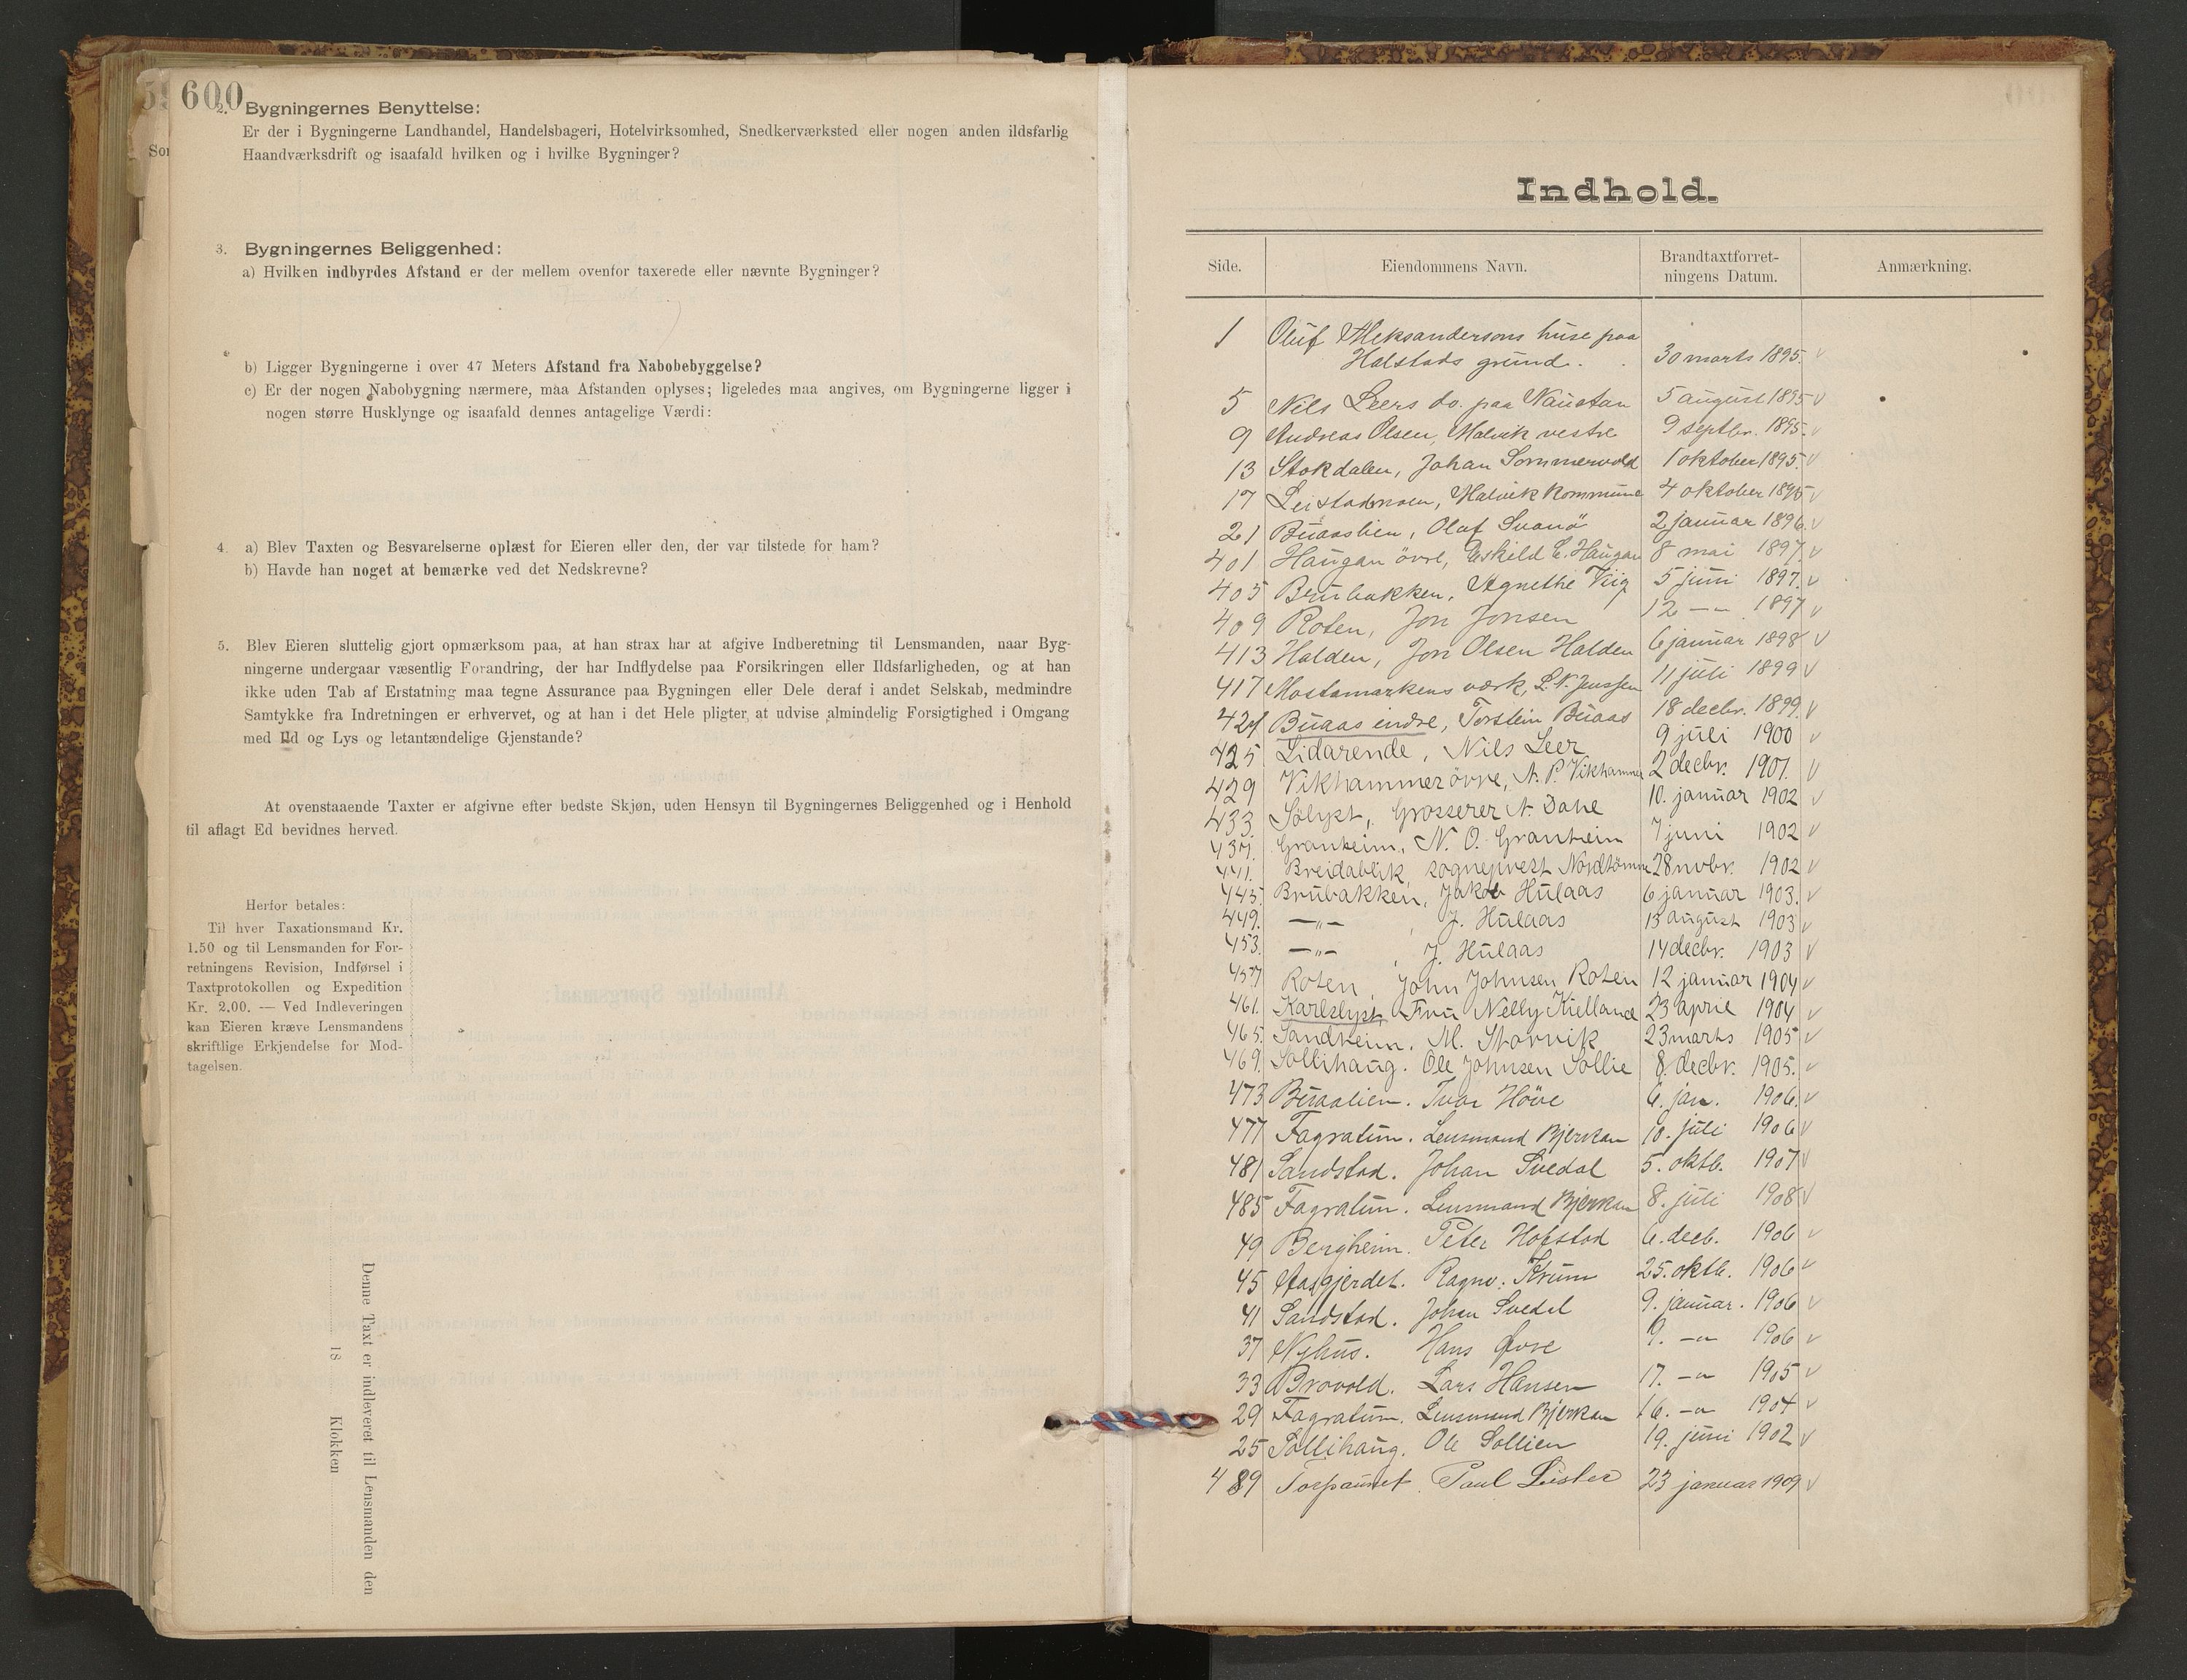 600
2. Bygningernes Benyttelse:
Er der i Bygningerne Landhandel, Handelsbageri, Hotelvirksomhed, Snedkerværksted eller nogen anden ildsfarlig
Haandværksdrift og isaafald hvilken og i hvilke Bygninger?
3. Bygningernes Beliggenhed:
a) Hvilken indbyrdes Afstand er der mellem ovenfor taxerede eller nævnte Bygninger?
b) Ligger Bygningerne i over 47 Meters Afstand fra Nabobebyggelse?
c) Er der nogen Nabobygning nærmere, maa Afstanden oplyses; ligeledes maa angives, om Bygningerne ligger i
nogen større Husklynge og isaafald dennes antagelige Værdi:
4. a) Blev Taxten og Besvarelserne oplæst for Eieren eller den, der var tilstede for ham?
b) Havde han noget at bemærke ved det Nedskrevne?
5. Blev Eieren sluttelig gjort opmærksom paa, at han strax har at afgive Indberetning til Lensmanden, naar Byg-
ningerne undergaar væsentlig Forandring, der har Indflydelse paa Forsikringen eller Ildsfarligheden, og at han
ikke uden Tab af Erstatning maa tegne Assurance paa Bygningen eller Dele deraf i andet Selskab, medmindre
Samtykke fra Indretningen er erhvervet, og at han i det Hele pligter at udvise almindelig Forsigtighed i Omgang
med Ild og Lys og letantændelige Gjenstande?
At ovenstaaende Taxter er afgivne efter bedste Skjøn, uden Hensyn til Bygningernes Beliggenhed og i Henhold
til aflagt Ed bevidnes herved.
Herfor betales:
Til hver Taxationsmand Kr.
1.50 og til Lensmanden for For-
retningens Revision, Indførsel i
Taxtprotokollen og Expedition
Kr. 2.00. — Ved Indleveringen
kan Eieren kræve Lensmandens
skriftlige Erkjendelse for Mod-
tagelsen.
Denne Taxt er indleveret til Lensmanden den
18 Klokken
Indhold.
Side. Eiendommens Navn. Brandtaxtforret-
ningens Datum. Anmærkning.
1 Oluf Aleksandersons huse paa
Halstads grund. 30 marts 1895. v
5 Nils Leers do. paa Naustan 5 august 1895 v
9 Andreas Olsen, Malvik vestre 9 septbr. 1895. v
13 Stokdalen, Johan Sommervold 1 oktober 1895. v
17 Leistadmoen, Malvik kommune 4 oktober 1895 v
21 Buaaslien, Olaf Svanö 2 januar 1896. v
401 Haugan övre, Eskild E. Haugan 8 mai 1897. v
405 Brubakken, Agnethe Viig 5 juni 1897. v
409 Roten, Jon Jonsen 12 —"— 1897 v
413 Halden, Jon Olsen Halden 6 januar 1898 v
417 Mostamarkens værk, L. N. Jenssen 11 juli 1899 v
421 Buaas indre, Torstein Buaas 18 decbr. 1899. v
425 Lidarende, Nils Leer 9 juli 1900 v
429 Vikhammer övre, N. P. Vikhammer 2 decbr. 1901. v
433. Sölyst, Grosserer N. Dahl 10. januar 1902 v
437. Granheim, N. O. Granheim 7 juni 1902 v
441. Breidablik, sogneprest Nordtömme 28 novbr. 1902 v
445. Brubakken, Jakob Hulaas 6 januar 1903. v
449. —"— , J. Hulaas 13 august 1903 v
453. —"— , J. Hulaas 14 decbr. 1903 v
457 Roten, John Johnsen Roten 12 januar 1904 v
461. Karlslyst, Fru Nelly Kielland 23 april 1904 v
465. Sandheim, M. Storvik 23 marts 1905 v
469. Sollihaug. Ole Johnsen Sollie 8. decbr. 1905. v
473 Buaalien. Ivar Höve 6. jan. 1906. v
477 Fagratun. Lensmand Bjerkan 10. juli 1906 v
481 Sandstad. Johan Svedal 5. oktb. 1907 v
485 Fagratun. Lensmand Bjerkan 8. juli 1908 v
49 Bergheim. Peter Hofstad 6. decb. 1906 v
45 Aasgjerdet. Ragnv. Krum 25. oktb. 1906 v
41 Sandstad. Johan Svedal 9. januar. 1906 v
37 Nyhus. Hans Øvre 9. —"— 1906 v
33 Brovold. Lars Hansen 17. —"— 1905 v
29 Fagratun. Lensmand Bjerkan 16. —"— 1904 v
25 Sollihaug. Ole Sollien 19. juni 1902 v
489 Torpaunet. Paul Lister 23 januar 1909 v